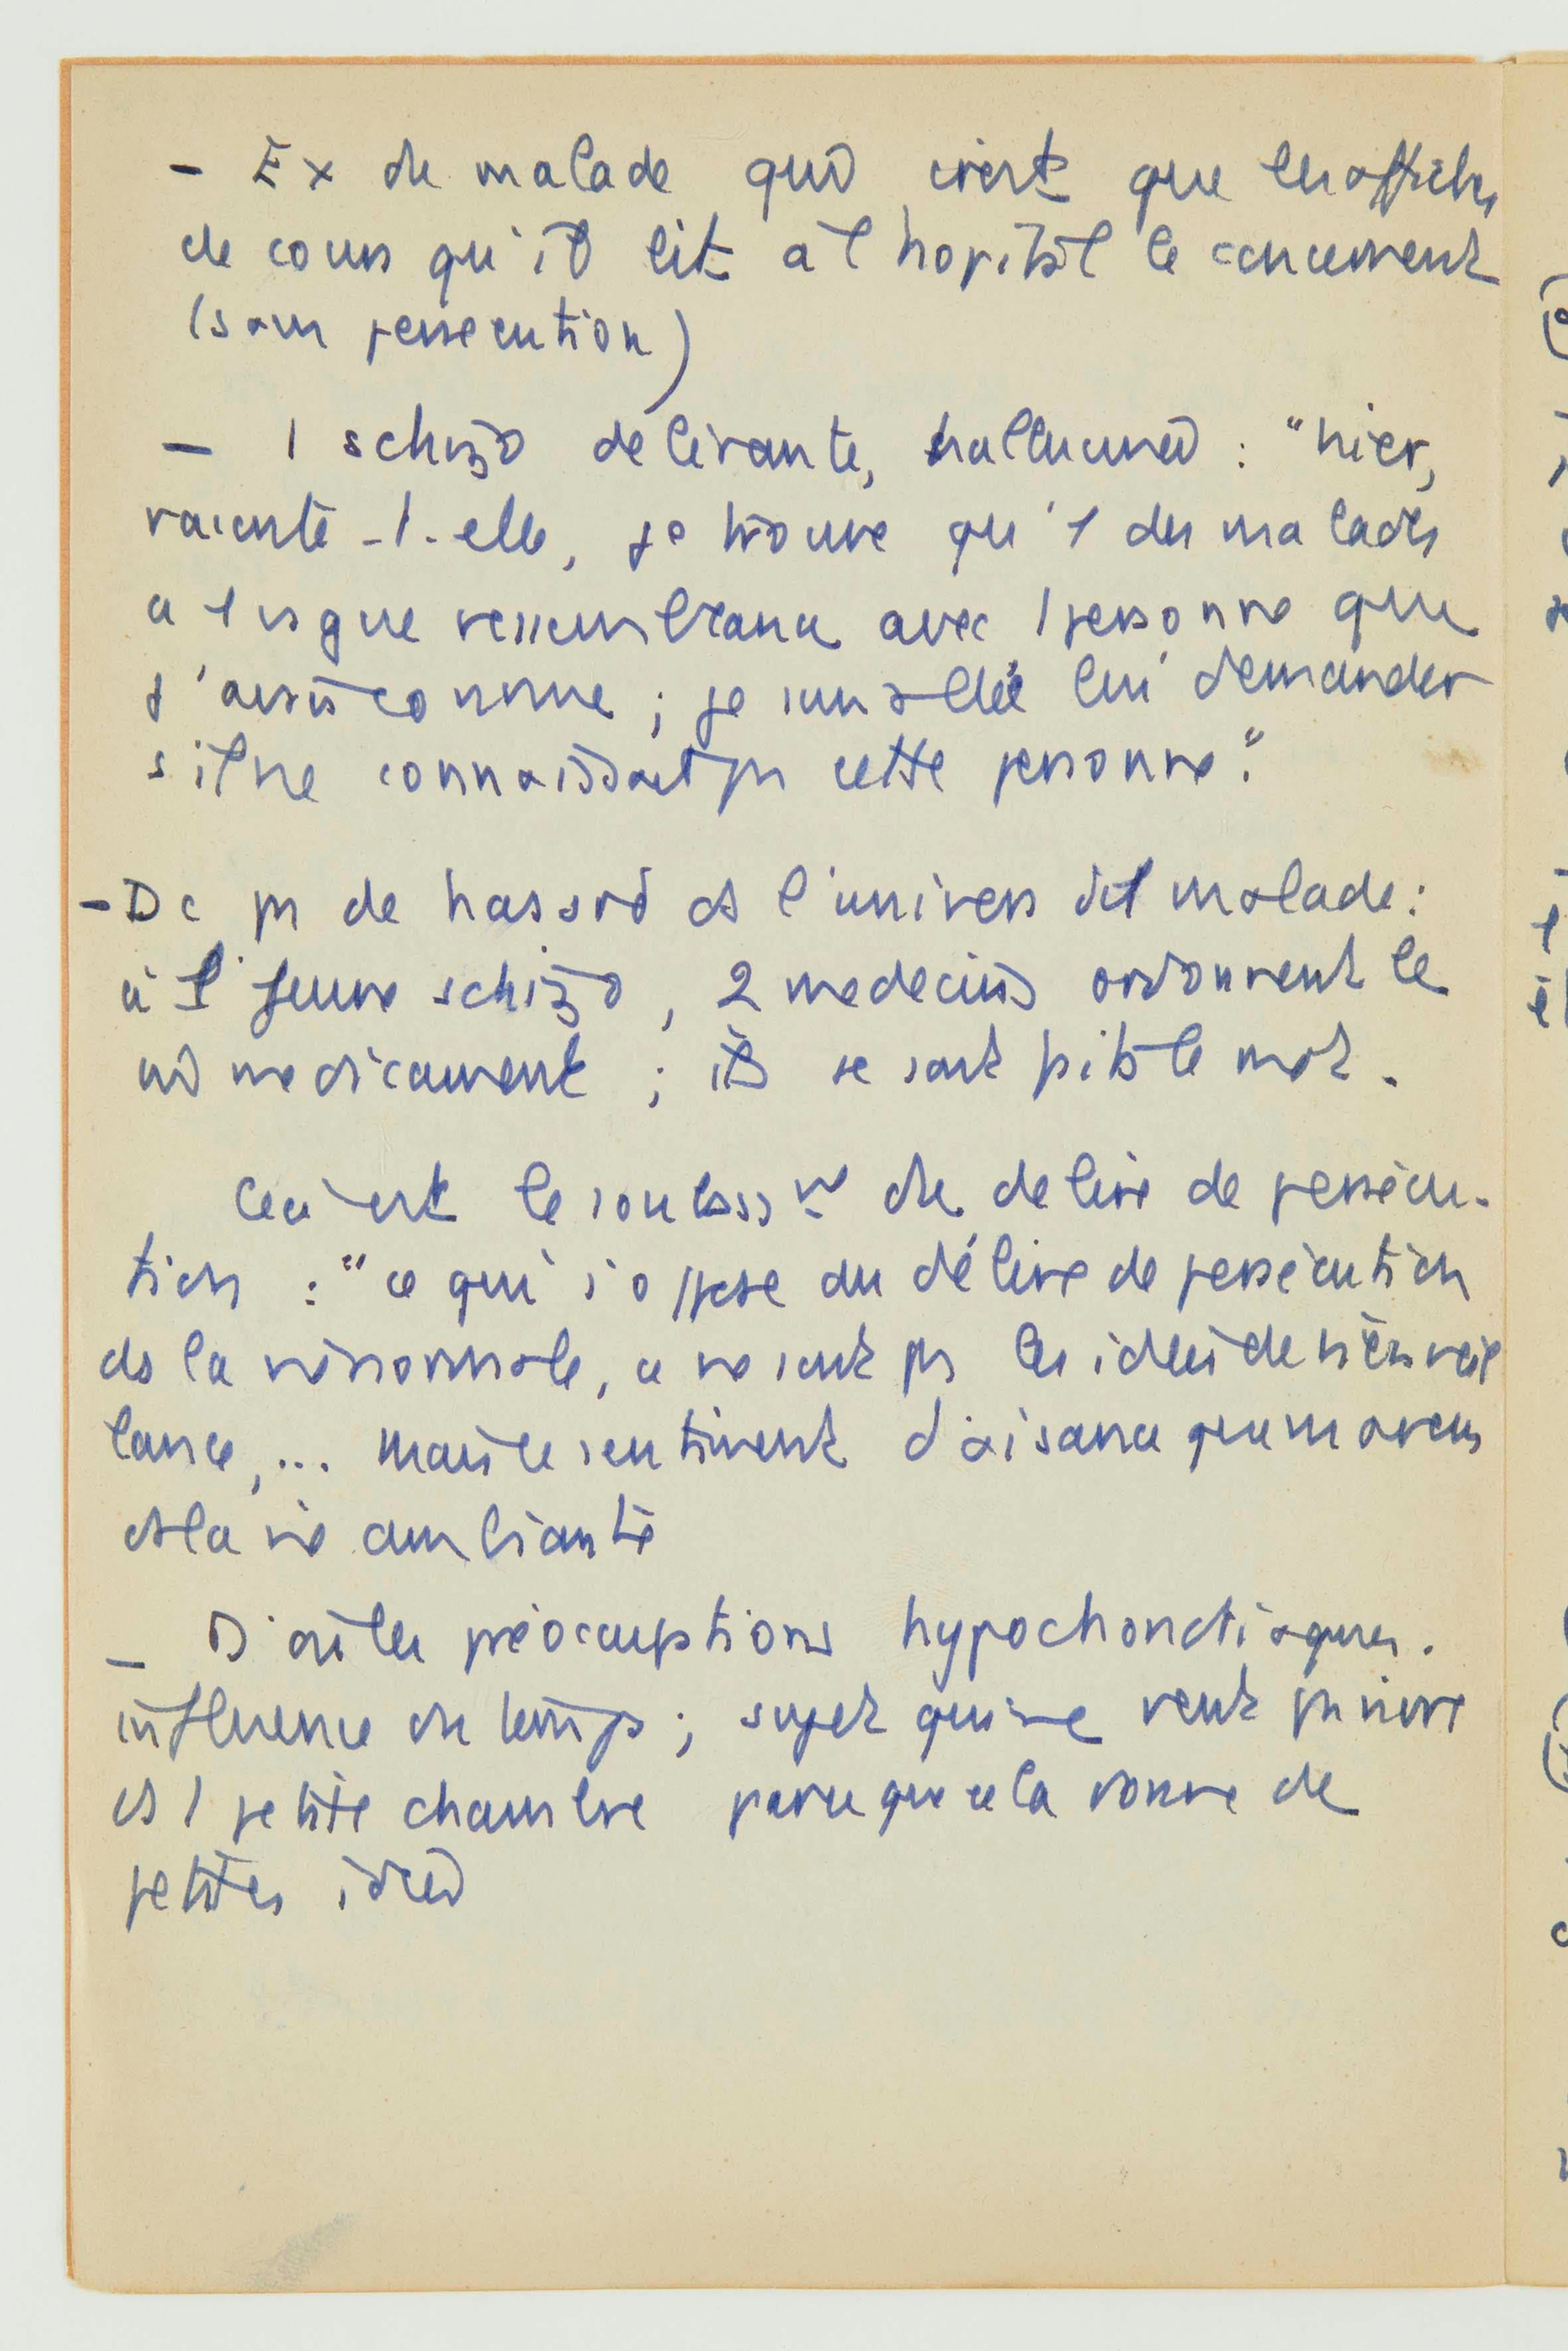 - Ex du malade qui croit que les affiches
de cours qu'il lit à l'hopital le concernent
(sans persecution)
- 1 schizo delirante, hallucinée : "hier,
raconte-t-elle, je trouve qu'1 des malades
a 1 vague ressemblance avec 1 personne que
j'avais connue ; je suis allée lui demander
s'il ne connaissait pas cette personne".
- Dc pas de hasard ds l'univers du malade :
à 1 jeune schizo, 2 medecins ordonnent le
mê medicament ; ils se sont passé le mot.
Ceci est le soubasst du delire de persécu-
tion : "ce qui s'oppose au délire de persécution
ds la vie normale, ce ne sont pas les idées de bienveil
lance, ... mais le sentiment d'aisance que nous avons
ds la vie ambiante
- D'où les préoccuptions hypochondriaques.
influence du temps ; sujet qui ne veut pas vivre
ds 1 petite chambre parce que cela donne de
petites idées